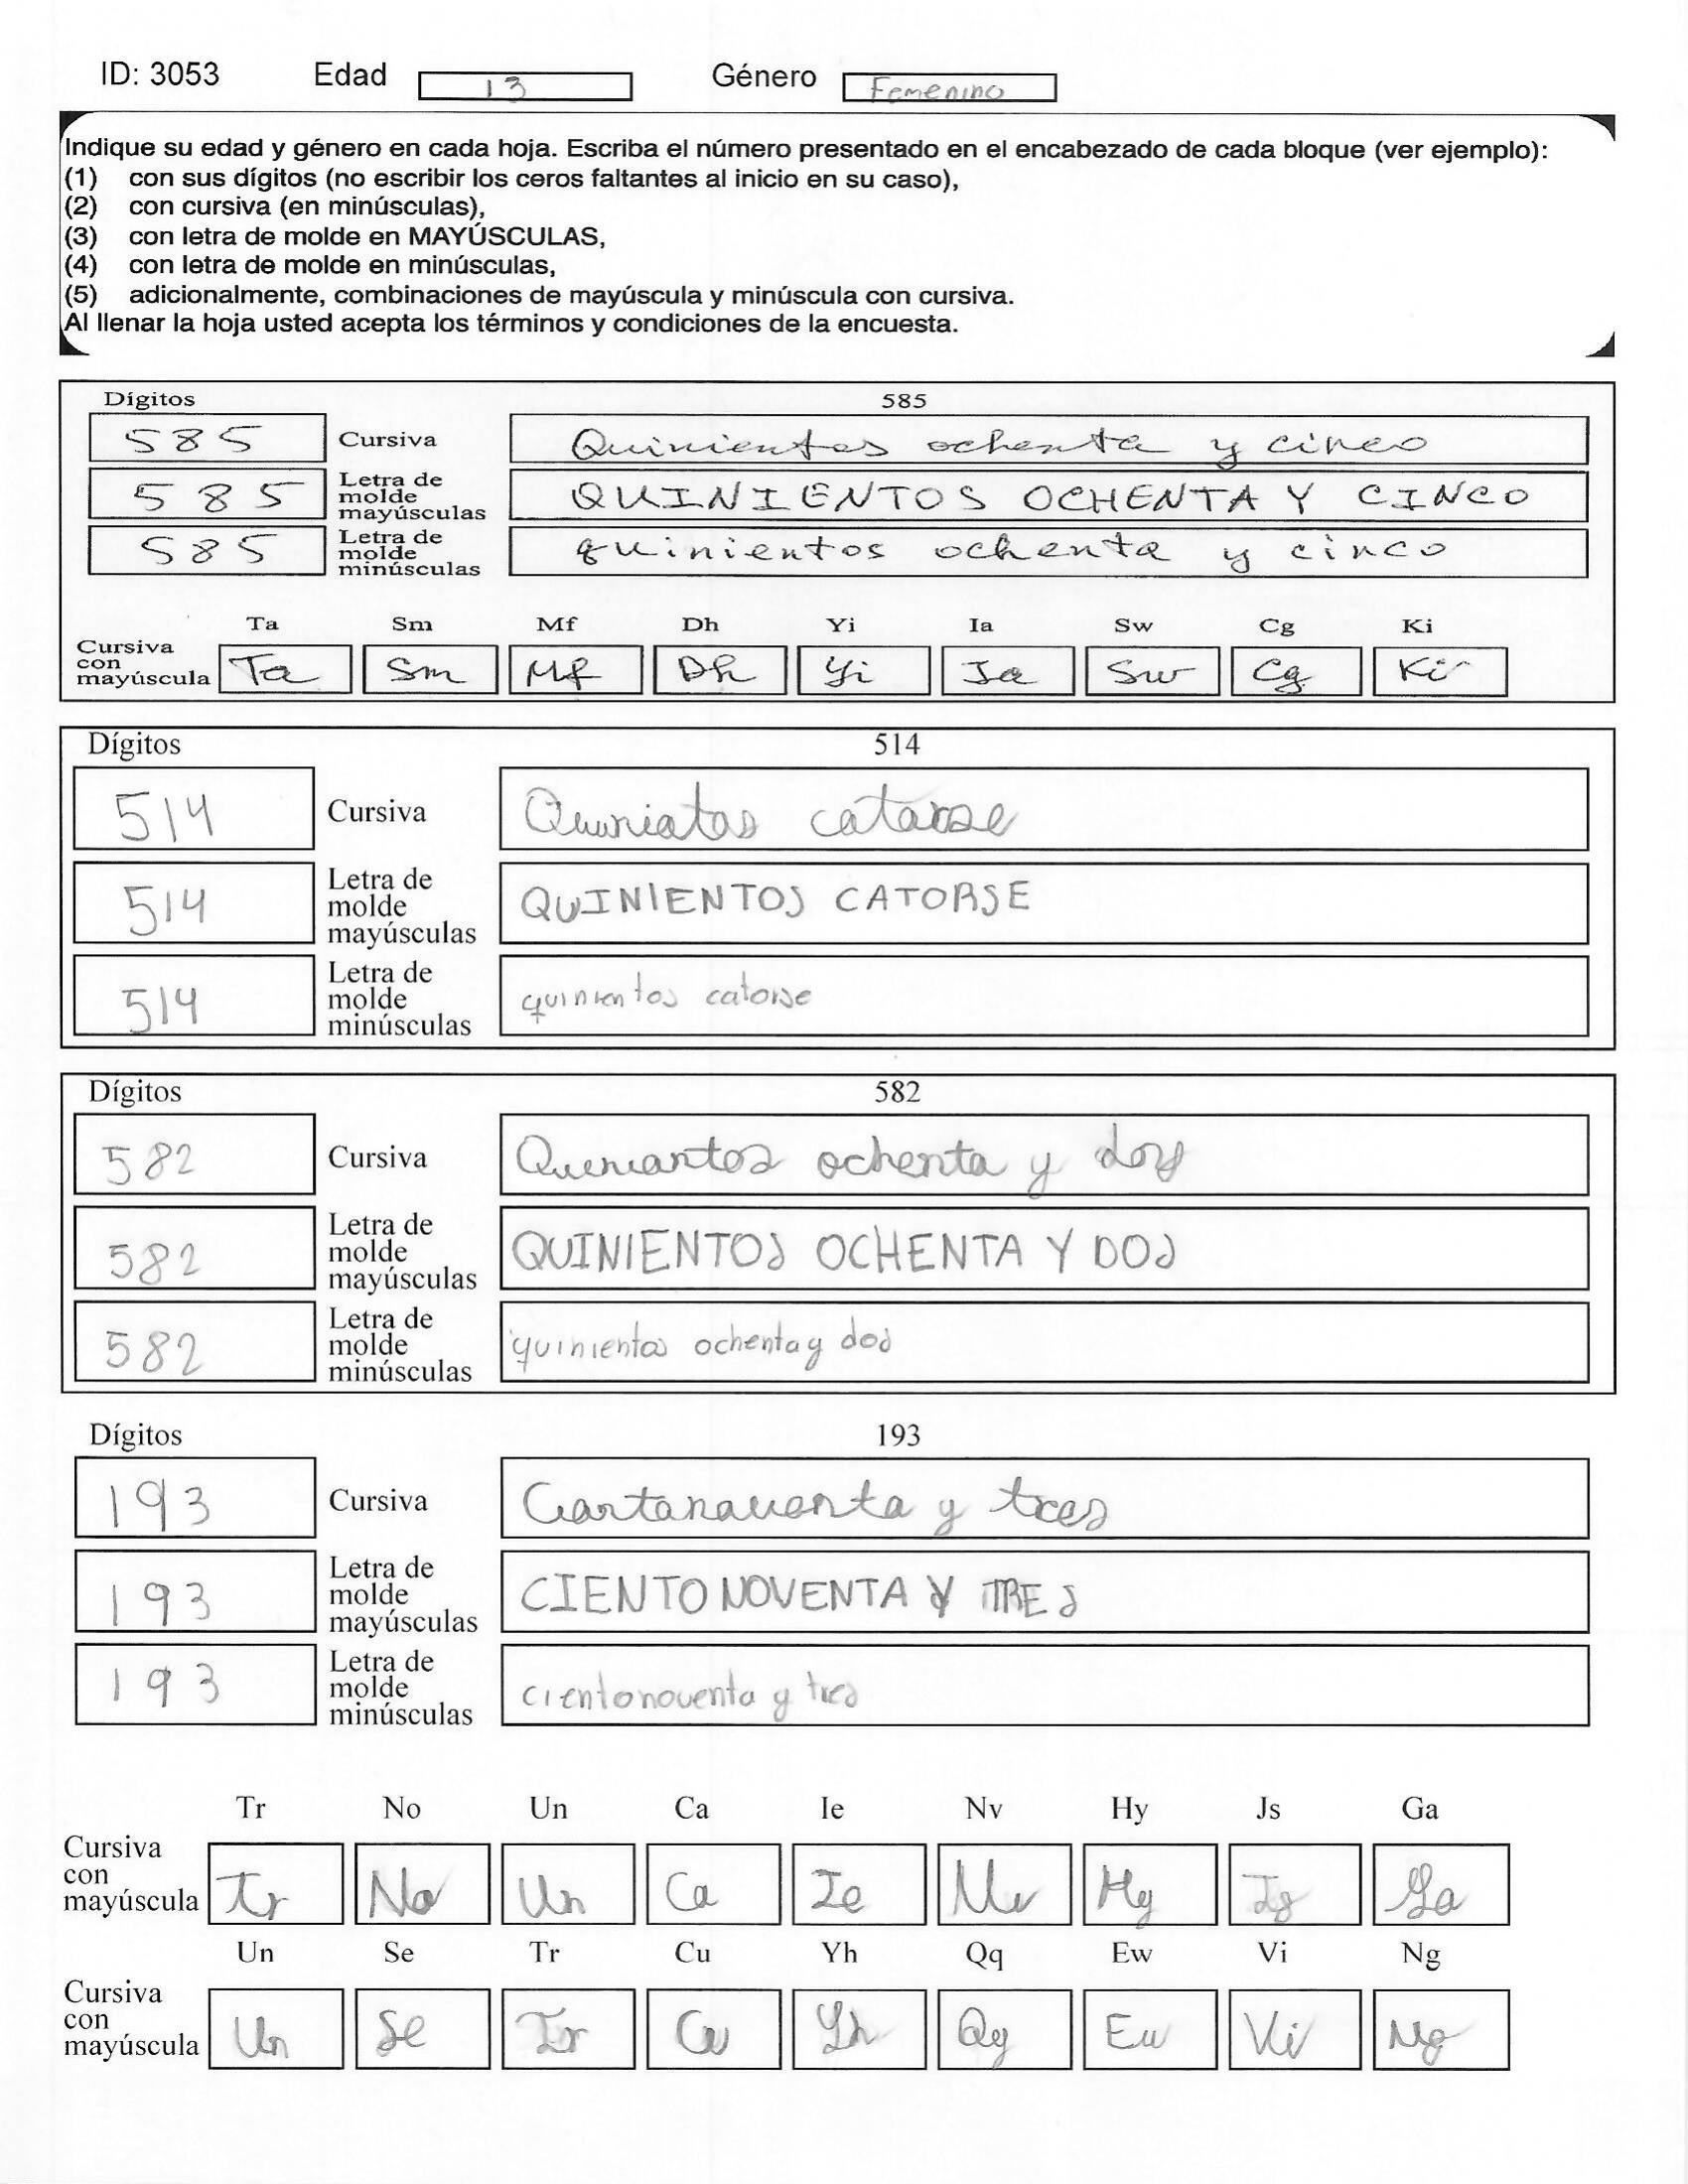 ID: 3053 Edad 13 Género Femenino
Indique su edad y género en cada hoja. Escriba el número presentado en el encabezado de cada bloque (ver ejemplo):
(1) con sus dígitos (no escribir los ceros faltantes al inicio en su caso),
(2) con cursiva (en minúsculas),
(3) con letra de molde en MAYÚSCULAS,
(4) con letra de molde en minúsculas,
(5) adicionalmente, combinaciones de mayúscula y minúscula con cursiva.
Al llenar la hoja usted acepta los términos y condiciones de la encuesta.
Dígitos 585
585 Cursiva Quinientos ochenta y cinco
585 Letra de molde mayúsculas QUINIENTOS OCHENTA Y CINCO
585 Letra de molde minúsculas quinientos ochenta y cinco
Ta Sm Mf Dh Yi Ia Sw Cg Ki
Cursiva con mayúscula Ta Sm Mf Dh Yi Ia Sw Cg Ki
Dígitos 514
514 Cursiva catorse
514 Letra de molde mayúsculas QUINIENTOS CATORSE
514 Letra de molde minúsculas quinientos catorse
Dígitos 582
582 Cursiva ochenta y dos
582 Letra de molde mayúsculas QUINIENTOS OCHENTA Y DOS
582 Letra de molde minúsculas quinientos ochenta y dos
Dígitos 193
193 Cursiva y tres
193 Letra de molde mayúsculas CIENTO NOVENTA Y TRES
193 Letra de molde minúsculas ciento noventa y tres
Tr No Un Ca Ie Nv Hy Js Ga
Cursiva con mayúscula Tr No Un Ca Ie Nv Hy Js Ga
Un Se Tr Cu Yh Qq Ew Vi Ng
Cursiva con mayúscula Un Se Tr Cu Yh Qq Ew Vi Ng